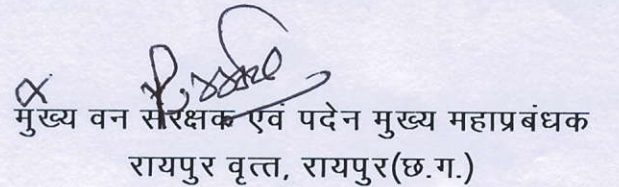 मुख्य वन संरक्षक एवं पदेन मुख्य महाप्रबंधक
रायपुर वृत्त, रायपुर(छ.ग.)